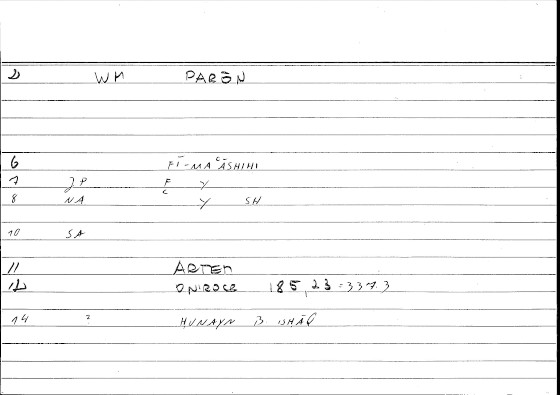 2 WM PARŌN
6 FĪ-MAʿĀSHIHI
7 JP F Y
8 NA C Y SH
10 SA
11 ARTEM
12 ONIROCR 185,23=337.3
14 ? HUNAYN B ISHĀQ